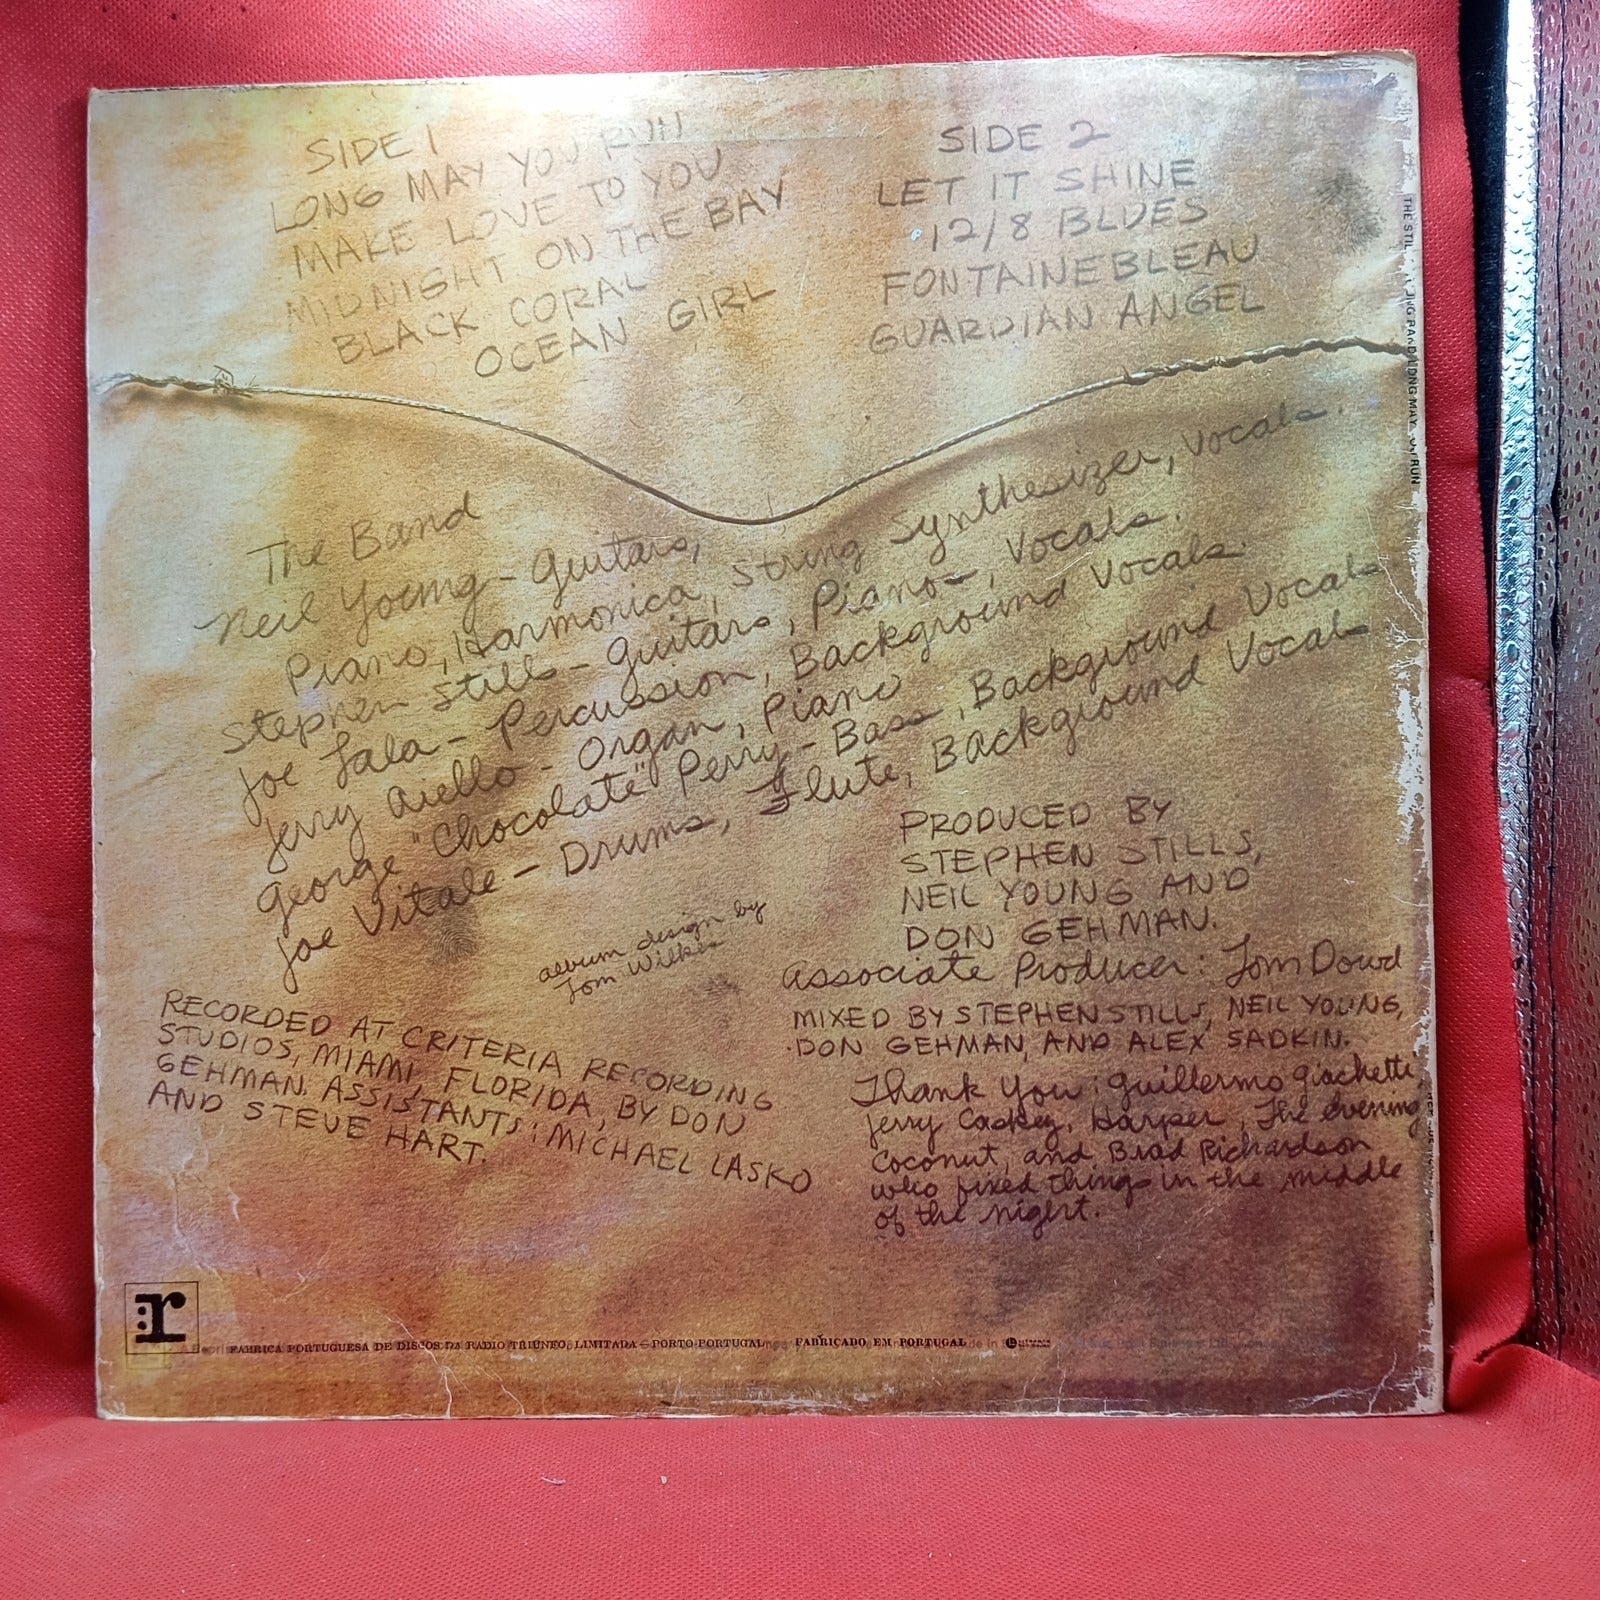 SIDE 1
LONG MAY YOU RUN
MAKE LOVE TO YOU
MIDNIGHT ON THE BAY
BLACK CORAL
OCEAN GIRL
SIDE 2
LET IT SHINE
12/8 BLUES
FONTAINEBLEAU
GUARDIAN ANGEL
The Band
Neil Young - Guitars,
Piano, Harmonica, String Synthesizer, Vocals.
Stephen Stills - Guitars, Piano, Vocals.
Joe Lala - Percussion, Background Vocals.
Jerry Aiello - Organ, Piano
George "Chocolate" Perry - Bass, Background Vocals
Joe Vitale - Drums, Flute, Background Vocals
album design by
Tom Wilkes
PRODUCED BY
STEPHEN STILLS,
NEIL YOUNG AND
DON GEHMAN.
Associate Producer: Tom Dowd
MIXED BY STEPHEN STILLS, NEIL YOUNG,
DON GEHMAN, AND ALEX SADKIN.
RECORDED AT CRITERIA RECORDING
STUDIOS, MIAMI, FLORIDA, BY DON
GEHMAN. ASSISTANTS: MICHAEL LASKO
AND STEVE HART.
Thank You: Guillermo Giachetti,
Jerry Caskey, Harper, The Evening
Coconut, and Brad Richardson
who fixed things in the middle
of the night.
:r
FABRICA PORTUGUESA DE DISCOS DA RADIO TRIUNFO, LIMITADA — PORTO-PORTUGAL FABRICADO EM PORTUGAL
THE STIL RUN